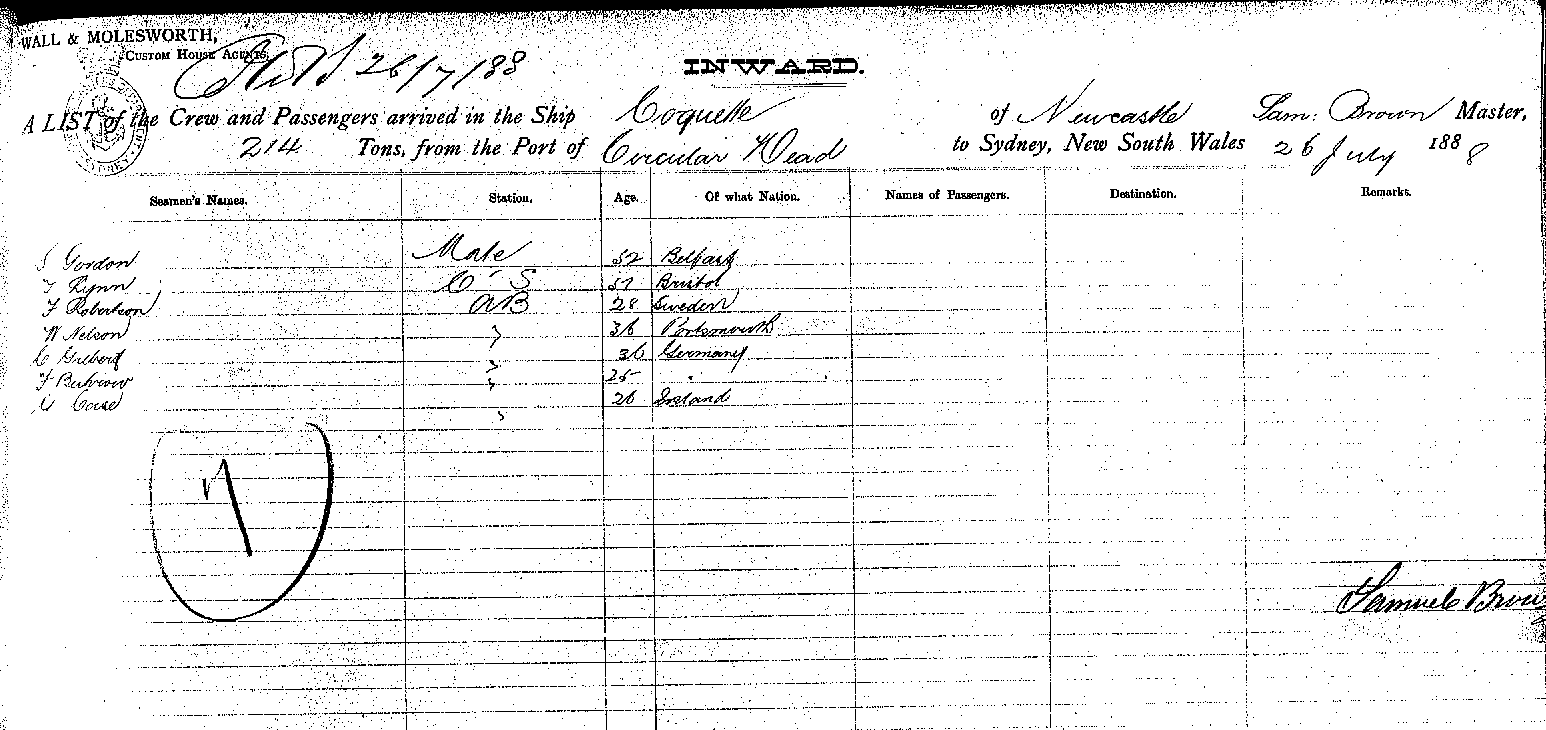 WALL & MOLESWORTH,
CUSTOM HOUSE AGENTS,
26/7/88
INWARD.
A LIST of the Crew and Passengers arrived in the Ship Coquette of Newcastle Sam: Brown Master,
214 Tons, from the Port of Circular Head to Sydney, New South Wales 26 July 1888
Seamen's Names. Station. Age. Of what Nation. Names of Passengers. Destination. Remarks.
S Gordon Mate 52 Belfast
Bristol
F Robertson AB 28 Sweden
W Nelson " 36 Portsmouth
C " 36 Germany
F " 25 "
" 26
7
Samuel Brown